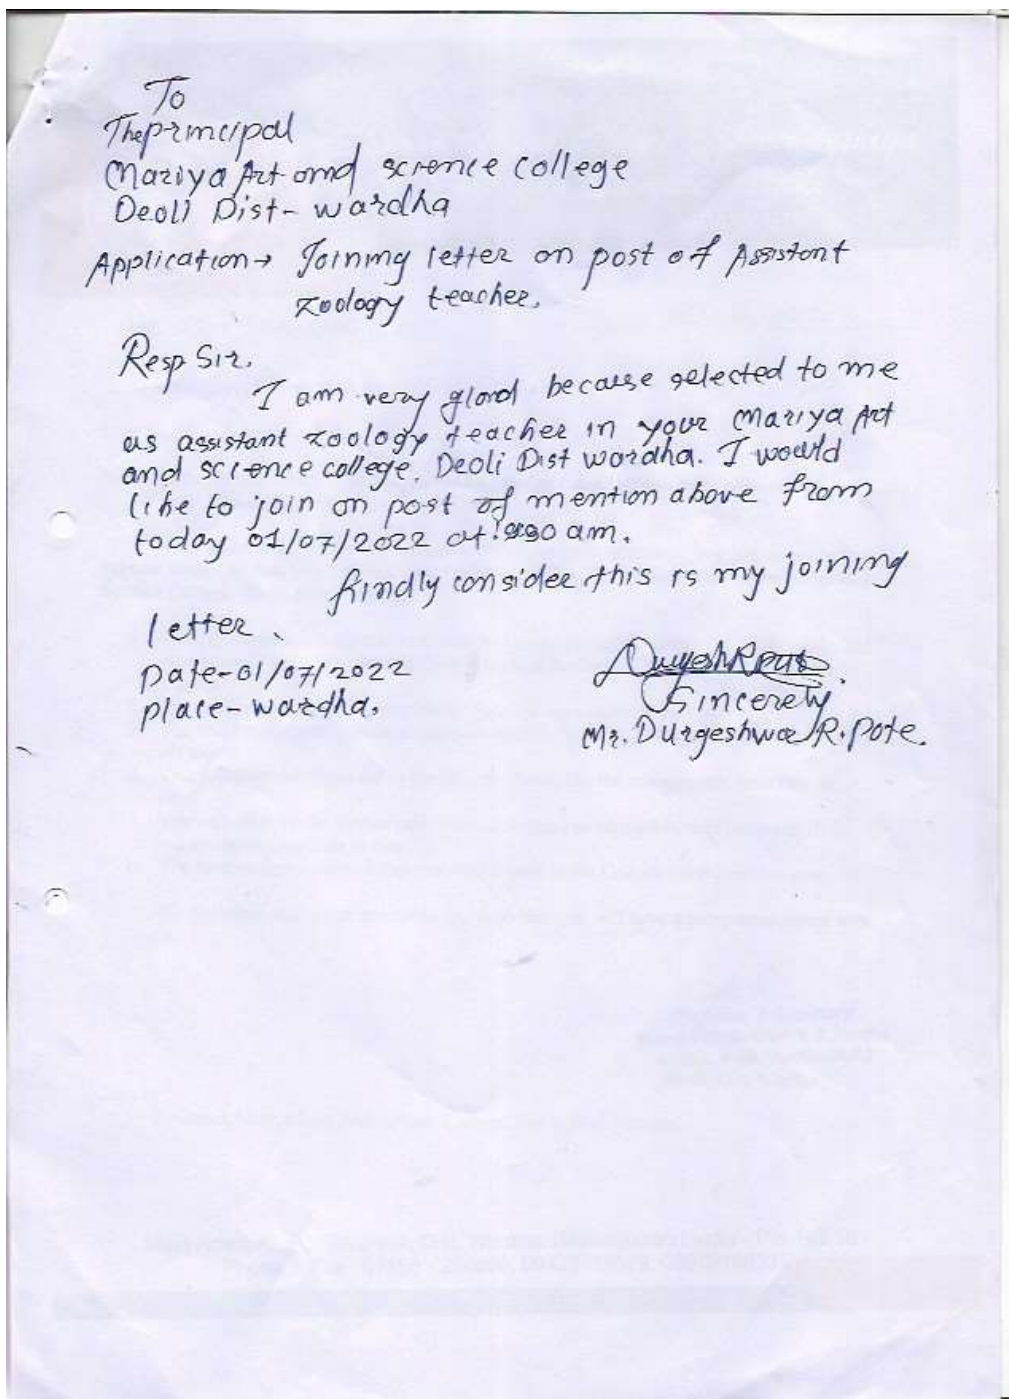 To
The principal
Mariya Art and science college
Deoli Dist- wardha
Application → Joining letter on post of Assistant
zoology teacher.
Resp Sir.
I am very glad because selected to me
as assistant zoology teacher in your Mariya Art
and science college. Deoli Dist wardha. I would
like to join on post of mention above from
today 01/07/2022 at am.
kindly consider this is my joining
letter.
Date-01/07/2022
place-wardha.
Sincerely
Mr. Durgeshwar R. Pote.